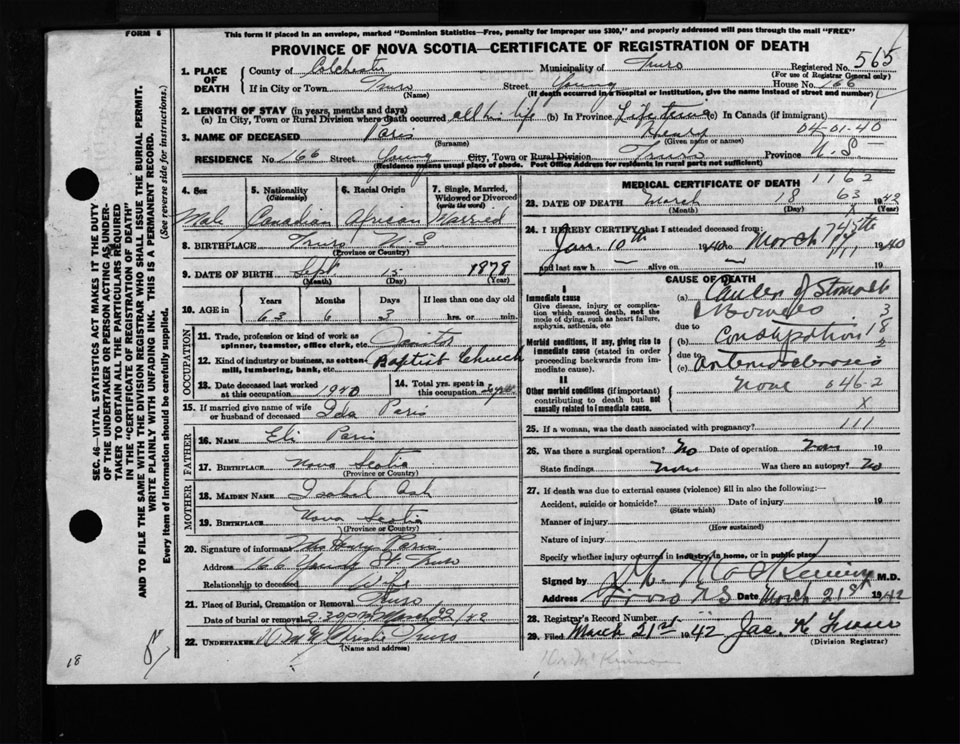 FORM 6
This form if placed in an envelope, marked "Dominion Statistics—Free, penalty for improper use $300," and properly addressed will pass through the mail "FREE"
PROVINCE OF NOVA SCOTIA—CERTIFICATE OF REGISTRATION OF DEATH
SEC. 46—VITAL STATISTICS ACT MAKES IT THE DUTY
OF THE UNDERTAKER OR PERSON ACTING AS UNDER-
TAKER TO OBTAIN ALL THE PARTICULARS REQUIRED
IN THE "CERTIFICATE OF REGISTRATION OF DEATH"
AND TO FILE THE SAME WITH THE DIVISION REGISTRAR WHO SHALL ISSUE THE BURIAL PERMIT.
WRITE PLAINLY WITH UNFADING INK. THIS IS A PERMANENT RECORD.
Every item of information should be carefully supplied. (See reverse side for instructions.)
1. PLACE OF DEATH
County of Colchester Municipality of Truro Registered No. 565
(For use of Registrar General only)
If in City or Town Truro Street Young House No. 166
(Name) (If death occurred in a hospital or institution, give the name instead of street and number)
2. LENGTH OF STAY (in years, months and days)
(a) In City, Town or Rural Division where death occurred all his life (b) In Province Lifetime (c) In Canada (if immigrant)
3. NAME OF DECEASED Paris Henry 04-01-40
(Surname) (Given name or names)
RESIDENCE No. 166 Street Young City, Town or Rural Division Truro Province N.S
(Residence means usual place of abode. Post Office Address for residents in rural parts not sufficient)
4. Sex 5. Nationality (Citizenship) 6. Racial Origin 7. Single, Married, Widowed or Divorced (write the word)
Male Canadian African Married
8. BIRTHPLACE Truro N.S
(Province or Country)
9. DATE OF BIRTH Sept 15 1878
(Month) (Day) (Year)
10. AGE IN Years Months Days If less than one day old
63 6 3 hrs. or min.
OCCUPATION
11. Trade, profession or kind of work as spinner, teamster, office clerk, etc. Janitor
12. Kind of industry or business, as cotton-mill, lumbering, bank, etc. Baptist Church
13. Date deceased last worked at this occupation 1940 14. Total yrs. spent in this occupation
15. If married give name of wife or husband of deceased Ida Paris
FATHER
16. NAME Eli Paris
17. BIRTHPLACE Nova Scotia
(Province or Country)
MOTHER
18. MAIDEN NAME Isobel Ash
19. BIRTHPLACE Nova Scotia
(Province or Country)
20. Signature of informant Mrs Henry Paris
Address 166 Young St. Truro
Relationship to deceased Wife
21. Place of Burial, Cremation or Removal Truro
Date of burial or removal March 22/42
22. UNDERTAKER Truro
(Name and address)
18
MEDICAL CERTIFICATE OF DEATH 1162
23. DATE OF DEATH March 18 63 1942
(Month) (Day) (Year)
24. I HEREBY CERTIFY that I attended deceased from:
Jan. 10th 1940 to March 1940
and last saw h alive on 19
CAUSE OF DEATH
I
Immediate cause
Give disease, injury or complication which caused death, not the mode of dying, such as heart failure, asphyxia, asthenia, etc.
(a) Cancer of Stomach
due to
Morbid conditions, if any, giving rise to immediate cause (stated in order proceeding backwards from immediate cause).
(b) Constipation
due to
(c) Arteriosclerosis
II
Other morbid conditions (if important) contributing to death but not causally related to immediate cause.
None 046-2
X
25. If a woman, was the death associated with pregnancy? 111
26. Was there a surgical operation? No Date of operation 19
State findings Was there an autopsy? No
27. If death was due to external causes (violence) fill in also the following:—
Accident, suicide or homicide? Date of injury 19
(State which)
Manner of injury
(How sustained)
Nature of injury
Specify whether injury occurred in industry, in home, or in public place
Signed by M.D.
Address Truro N.S Date March 21st 1942
28. Registrar's Record Number
29. Filed March 21st 1942 Jas. K
(Division Registrar)
Dr. McKinnon